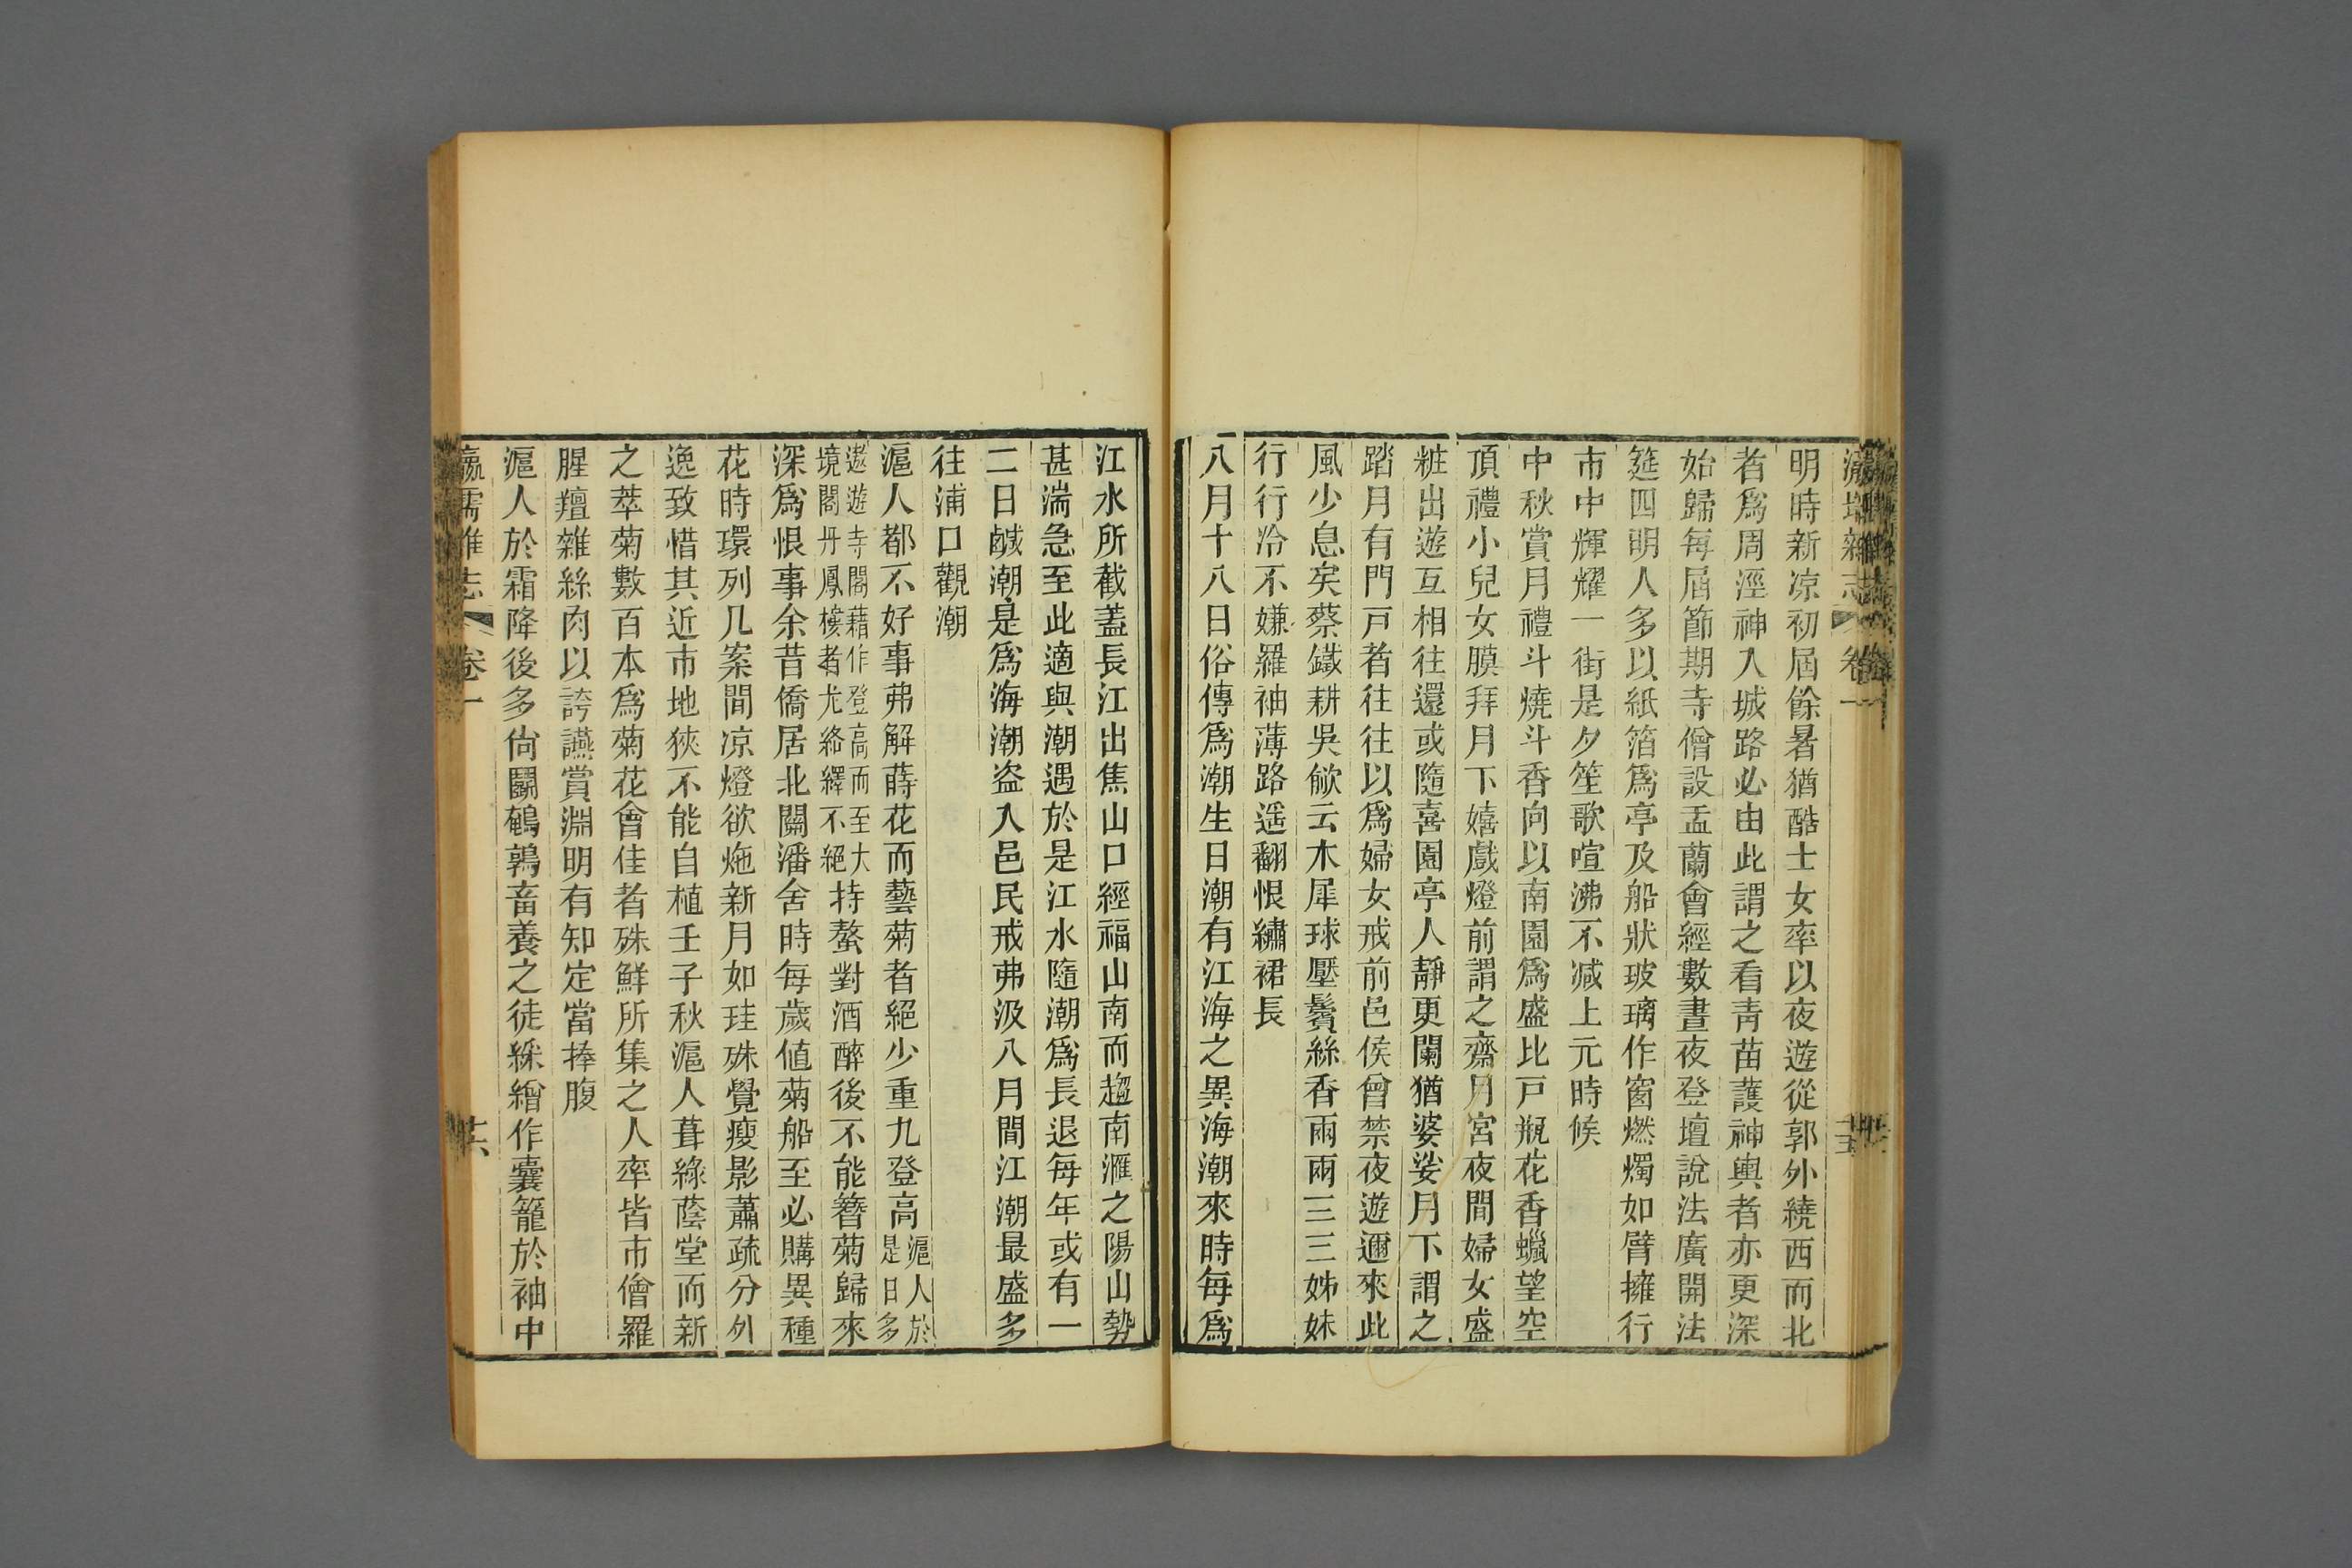 明時新凉初屆餘暑猶酷士女率以夜遊從郭外繞西而北
者爲周涇神入城路必由此謂之看靑苗護神輿者亦更深
始歸每屆節期寺僧設盂蘭會經數晝夜登壇說法廣開法
筵四明人多以紙箔爲亭及船狀玻璃作窗燃燭如臂擁行
市中輝耀一街是夕笙歌喧沸不减上元時候
中秋賞月禮斗燒斗香向以南園爲盛比戸瓶花香蠟望空
頂禮小兒女膜拜月下嬉戲燈前謂之齋月宮夜間婦女盛
粧出遊互相往還或隨喜園亭人靜更闌猶婆娑月下謂之
踏月有門戸者往往以爲婦女戒前邑侯曾禁夜遊邇來此
風少息矣蔡鐵耕吳歈云木犀球壓鬢絲香兩兩三三姊妹
行行冷不嫌羅袖薄路遥翻恨繡裙長
八月十八日俗傳爲潮生日潮有江海之異海潮來時每爲
江水所截蓋長江出焦山口經福山南而趨南滙之陽山勢
甚湍急至此適與潮遇於是江水隨潮爲長退每年或有一
二日鹹潮是爲海潮盜入邑民戒弗汲八月間江潮最盛多
往浦口觀潮
滬人都不好事弗解蒔花而藝菊者絕少重九登高滬人於是日多
遨遊寺閣藉作登高而至大境閣丹鳳樓者尤絡繹不絕持螯對酒醉後不能簪菊歸來
深爲恨事余昔僑居北關潘舍時每歲値菊船至必購異種
花時環列几案間凉燈欲灺新月如珪殊覺瘦影蕭疏分外
逸致惜其近市地狹不能自植壬子秋滬人葺綠蔭堂而新
之萃菊數百本爲菊花會佳者殊鮮所集之人率皆市儈羅
腥羶雜絲肉以誇讌賞淵明有知定當捧腹
滬人於霜降後多尙鬭鵪鶉畜養之徒綵繒作囊籠於袖中
瀛壖雜志 卷一